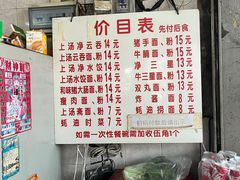 价目表 先付后食
上汤净云吞14元
上汤云吞面、粉14元
上汤净水饺14元
上汤水饺面、粉14元
和味猪大肠面、粉14元
瘦肉面、粉14元
上汤斋面、粉7元
蚝油时菜7元
猪手面、粉15元
牛腩面、粉15元
净三星13元
牛三星面、粉13元
双丸面、粉13元
炸酱面8元
蚝油面8元
如需一次性餐碗需加收伍角1个